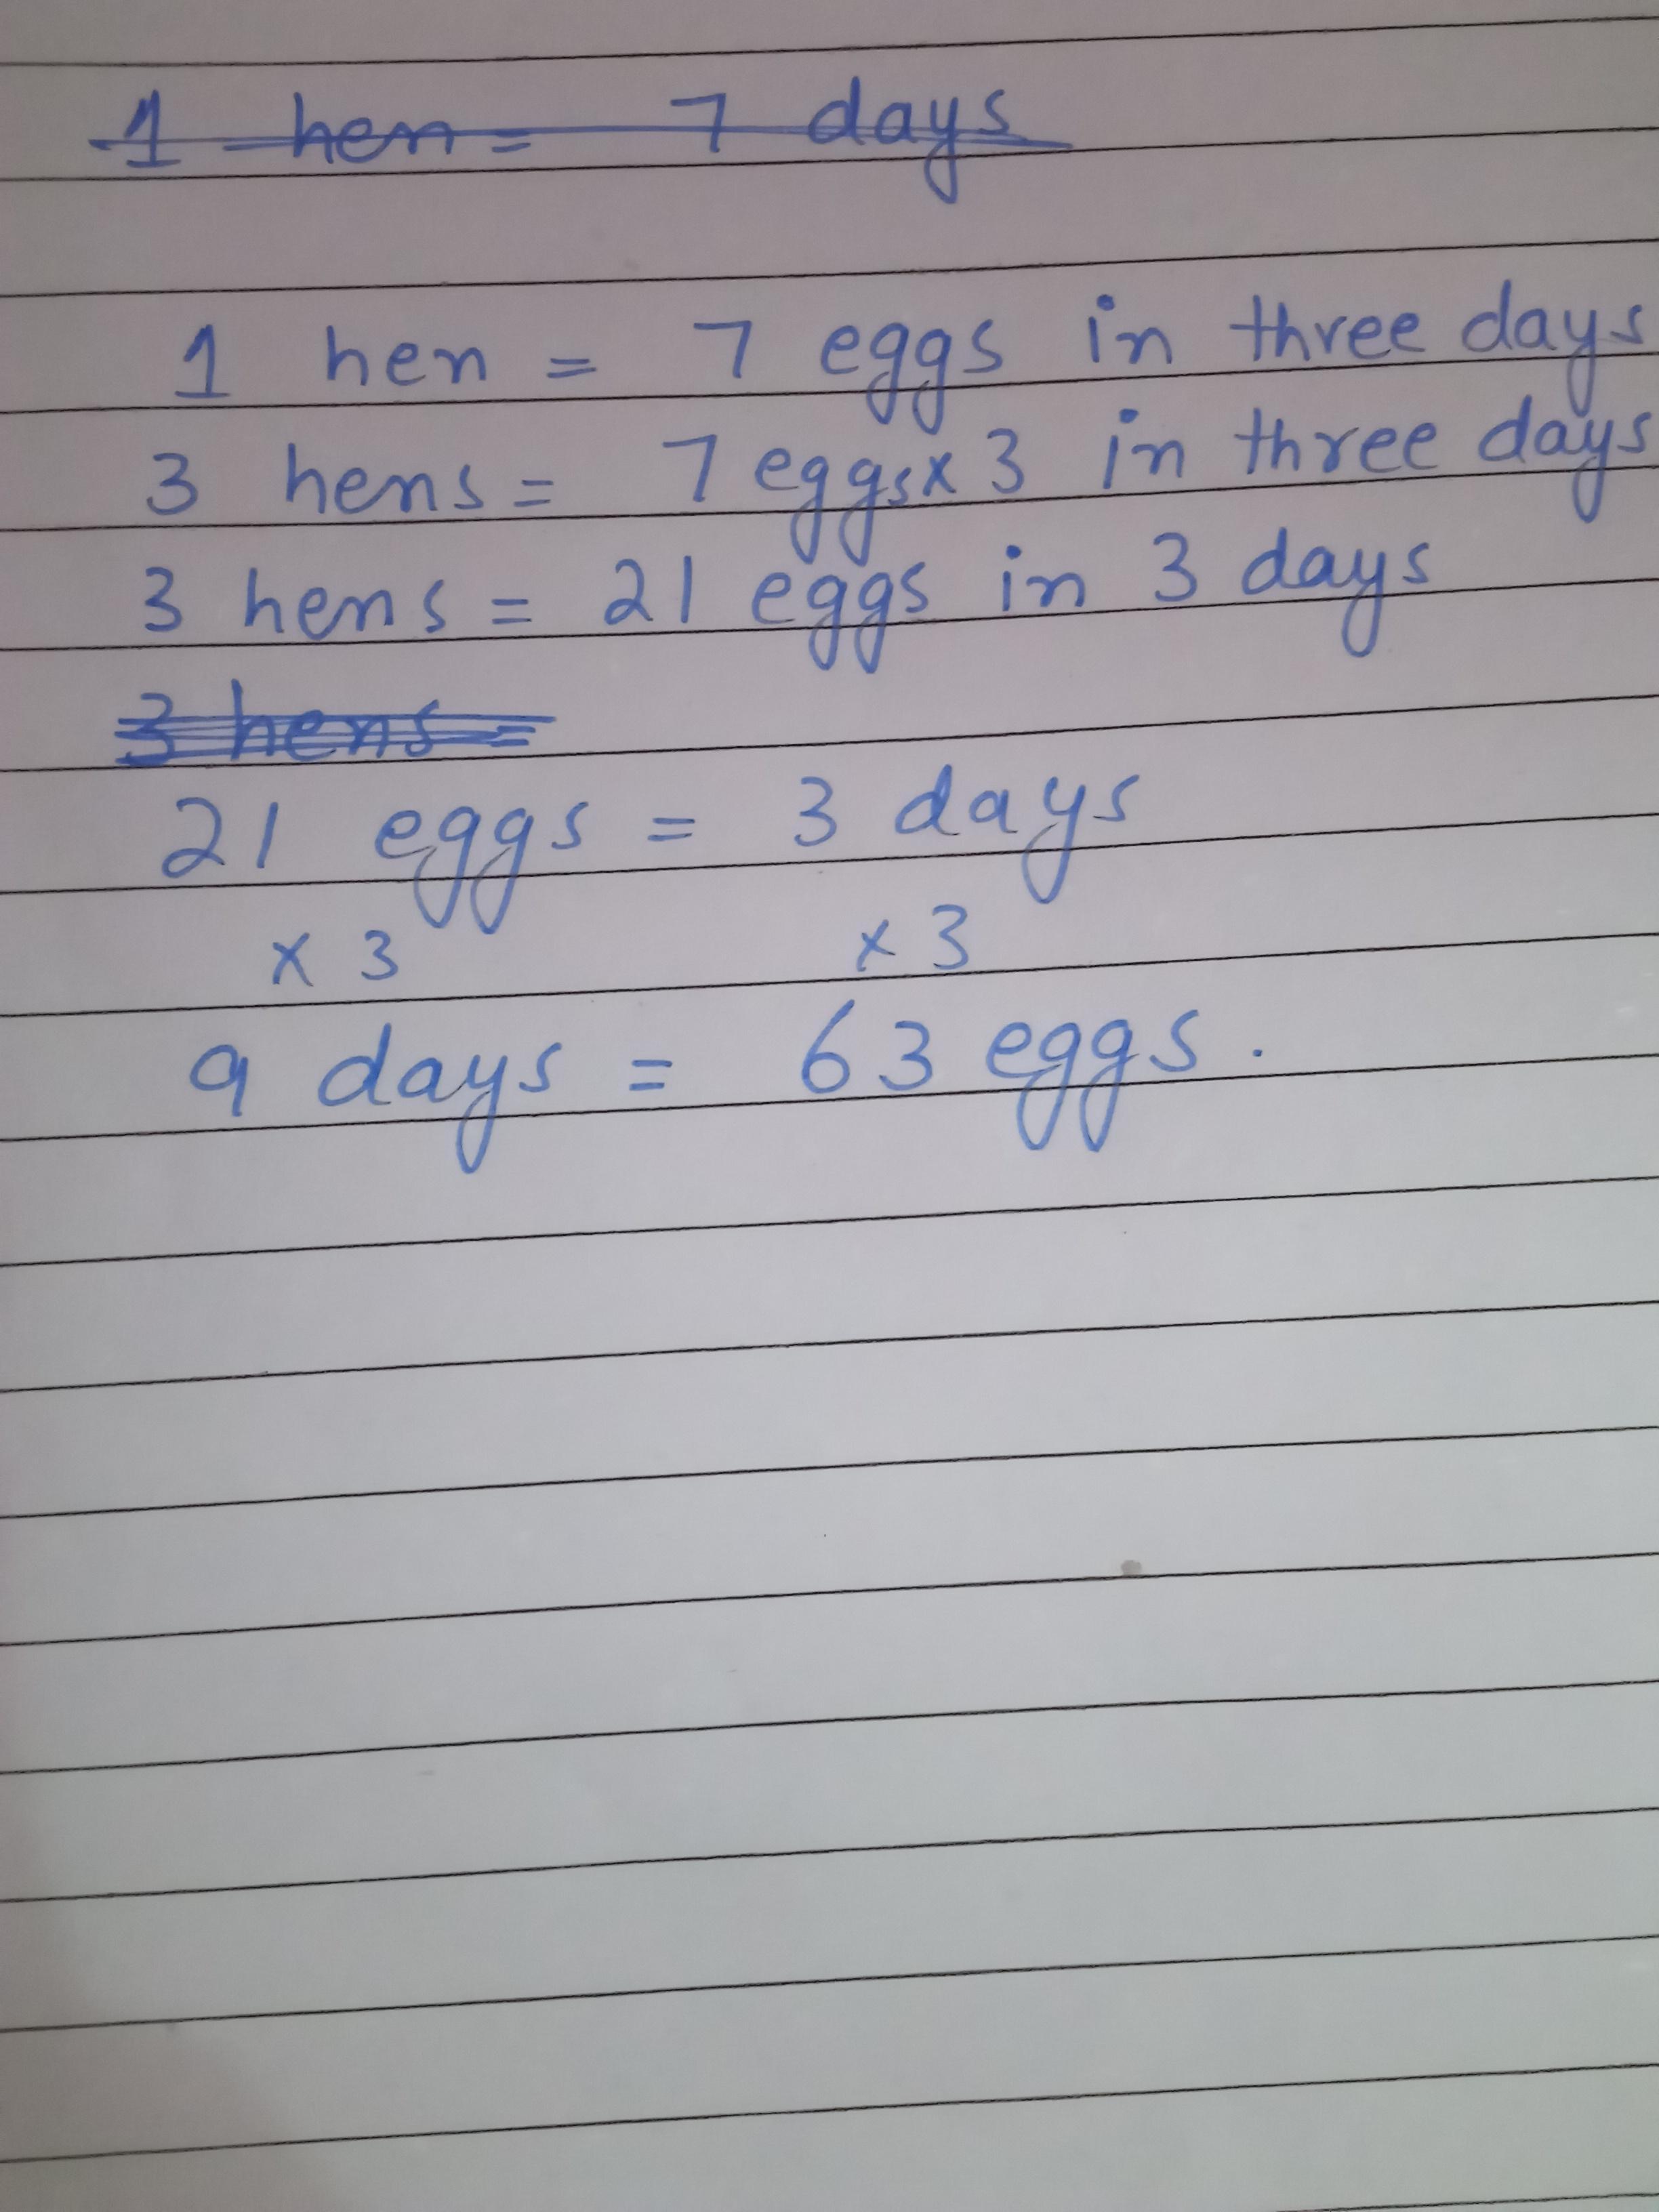 1 hen = 7 days
1 hen = 7 eggs in three days
3 hens = 7 eggs x 3 in three days
3 hens = 21 eggs in 3 days
3 hens =
21 eggs = 3 days
x 3 x 3
9 days = 63 eggs.